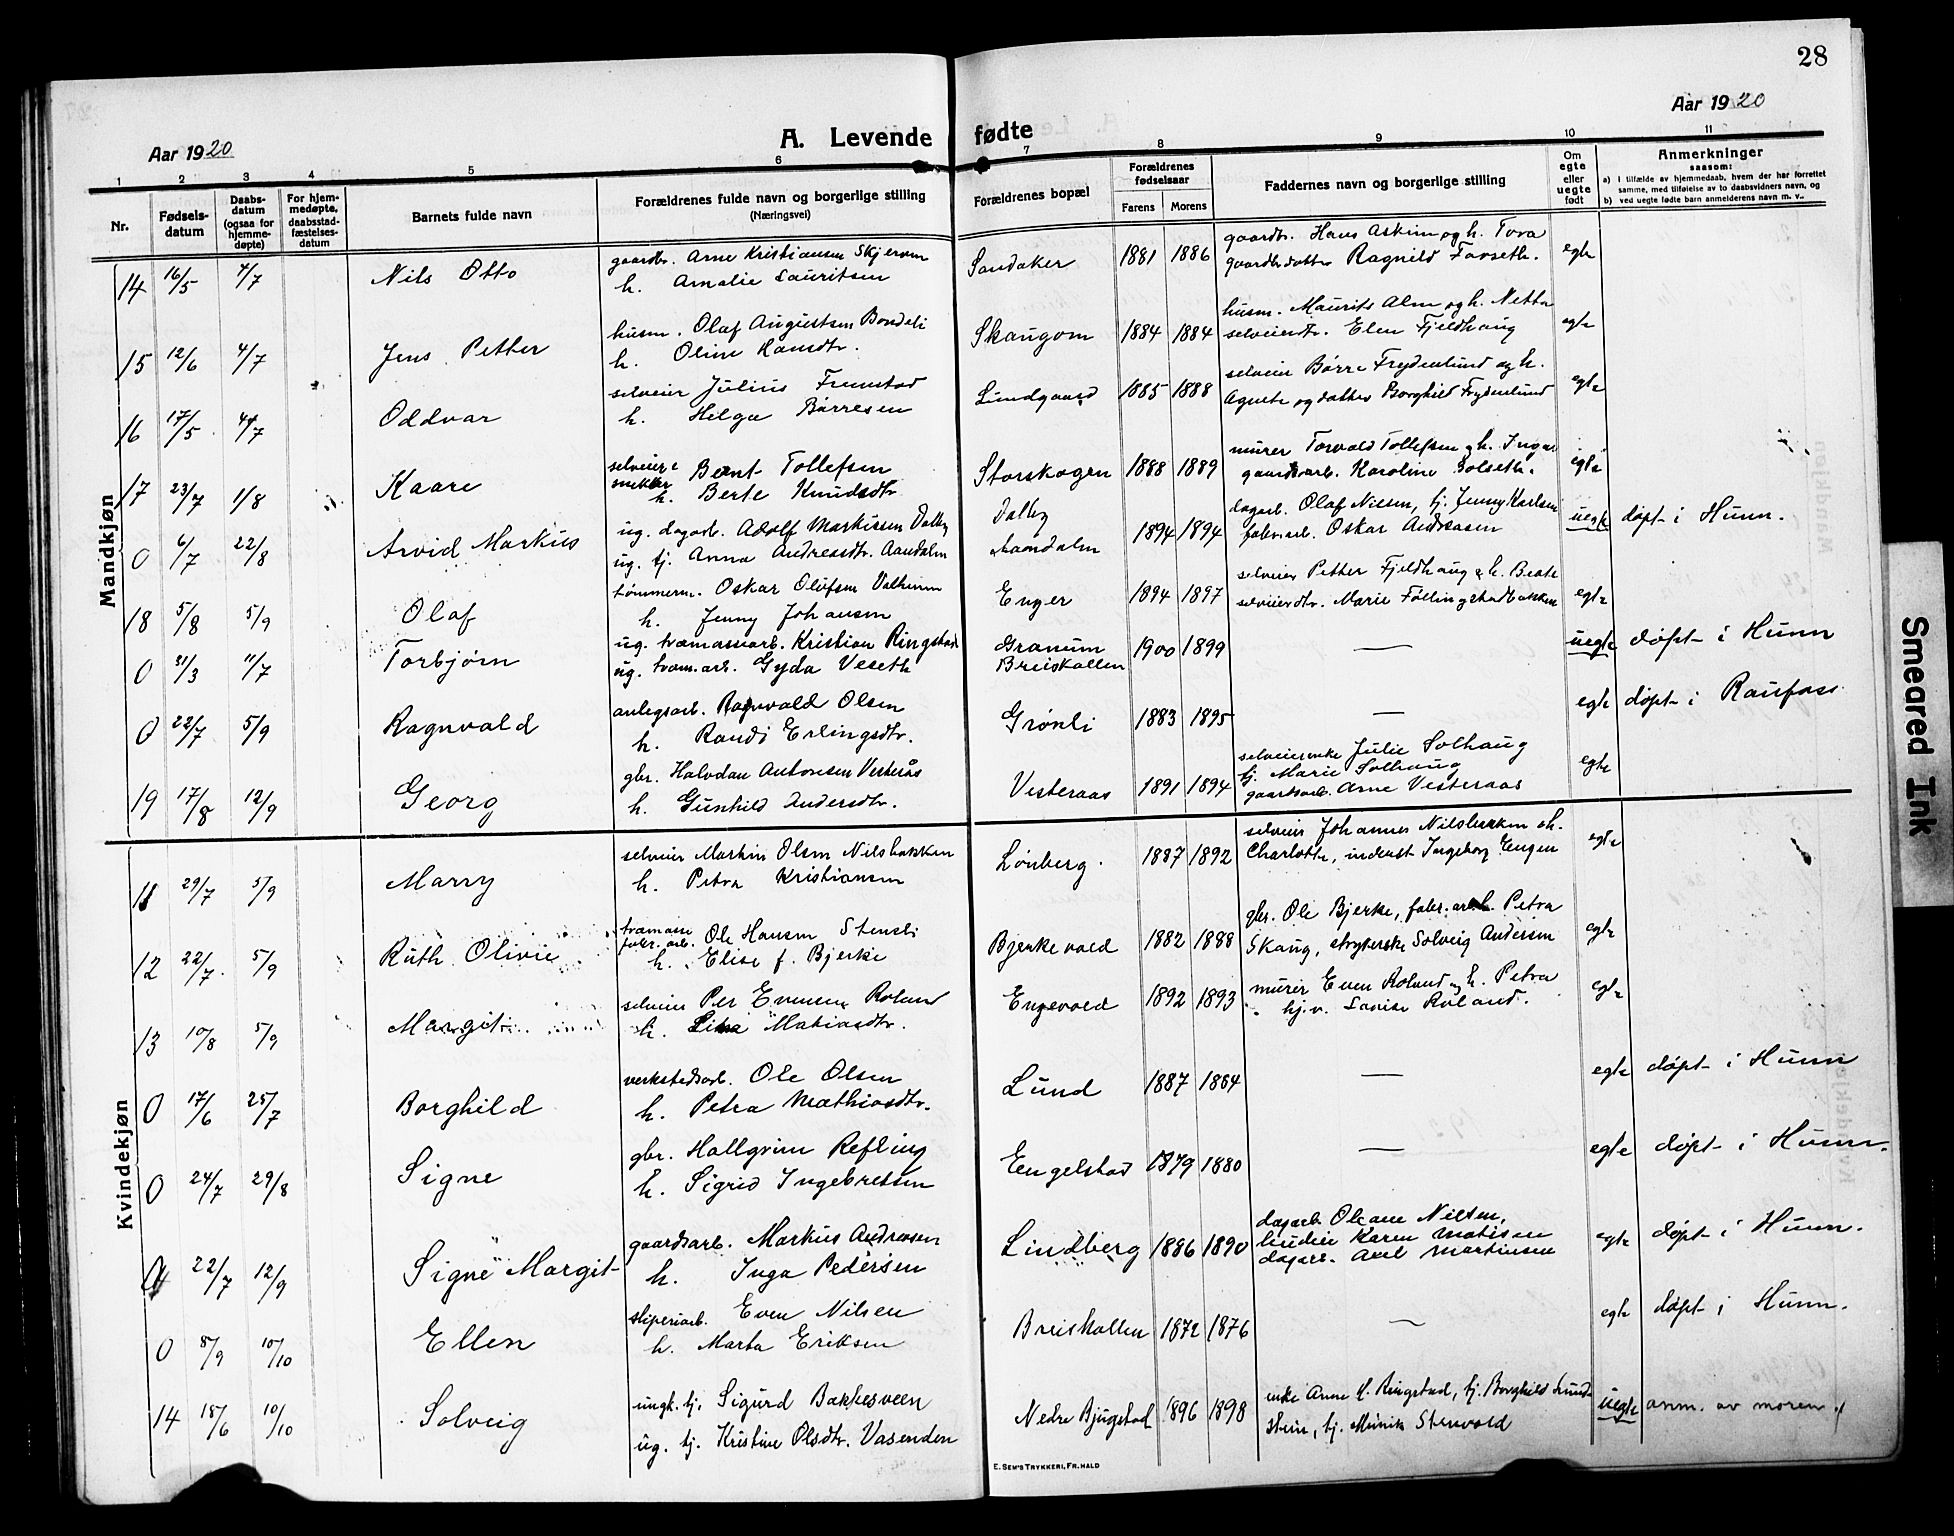 28
Aar 1920
A. Levende fødte
Aar 1920
1 2 3 4 5 6 7 8 9 10 11
Nr.
Fødsels-
datum
Daabs-
datum
(ogsaa for
hjemme-
døpte)
For hjem-
medøpte,
daabsstad-
fæstelses-
datum
Barnets fulde navn
Forældrenes fulde navn og borgerlige stilling
(Næringsvei)
Forældrenes bopæl
Forældrenes
fødselsaar
Farens
Morens
Faddernes navn og borgerlige stilling
Om
egte
eller
uegte
født
Anmerkninger
saasom:
a) I tilfælde av hjemmedaab, hvem der har forrettet
samme, med tilføielse av to daabsvidners navn, og
b) ved uegte fødte barn anmelderens navn m. v.
Mandkjøn
14 16/5 4/7 Nils Otto
gaardbr. Arne Kristiansen Skjerven
h. Amalie Lauritsen
Sandaker 1881 1886
gaardbr. Hans Askim og h. Tora
gaardbdatter Ragnild Farseth.
egte
15 12/6 4/7 Jens Petter
husm. Olaf Augustsen Bondeli
h. Oline Hansdtr.
Skaugom 1884 1884
husm. Maurits Alm og h. Netta
selveierdtr. Elen Fjeldhaug
egte
16 17/5 4/7 Oddvar
selveier Julius Fremstad
h. Helga Børresen
Lundgaard 1885 1888
selveier Børre Frydenlund og h.
Agnete og datter Borghild Frydenlund
egte
17 23/7 1/8 Kaare
selveier
Bernt Tollefsen
h. Berte Knudsdtr
Storskogen 1888 1889
murer Torvald Tollefsen og h. Inga
gaardsarb. Karoline Solseth.
egte
0 6/7 22/8 Arvid Markus
ug. dagarb. Adolf Markussen Dalby
ug. tj. Anna Andresdtr. Aandalen
Dalby
Aandalen
1894 1894
dagarb. Olaf Nilsen, tj. Jenny Karlsen
fabr.arb. Oskar Andreasen
uegte døpt i Hunn.
18 5/8 5/9 Olaf
tømmerm. Oskar Olufsen Valheim
h. Jenny Johansen
Enger 1894 1897
selveier Petter Fjeldhaug & h. Beate
selveierdtr. Marie Føllingstadbakken
egte
0 31/3 11/7 Torbjørn
ug. træmassearb. Kristian Ringstad
ug. træm.arb. Gyda Veseth
Granum
Breiskallen
1900 1899
—
uegte døpt i Hunn
0 22/7 5/9 Ragnvald
anlegsarb. Ragnvald Olsen
h. Randi Erlingsdtr.
Grønli 1883 1895
—
egte døpt i Raufoss
19 17/8 12/9 Georg
gbr. Halvdan Antonsen Vesterås
h. Gunhild Andersdtr.
Vesteraas 1891 1894
selveierenke Julie Solhaug
tj. Marie Solhaug
gaardsarb. Arne Vesteraas
egte
Kvindekjøn
11 29/7 5/9 Marry
selveier Martin Olsen Nilsbakken
h. Petra Kristiansen
Lønberg. 1887 1892
selveier Johannes Nilsbakken o h.
Charlotte, inderst Ingeborg Engen
egte
12 22/7 5/9 Ruth Olivie
træmasse
fabr. arb. Ole Hansen Stensli
h. Elise f. Bjerke
Bjerkevold 1882 1888
gbr. Ole Bjerke, fabr.arb. Petra
Skaug, strykerske Solveig Andersen
egte
13 10/8 5/9 Margit
selveier Per Evensen Roland
h. Lina Matiasdtr.
Engevold 1892 1893
murer Even Roland og h. Petra
hj.v. Lovise Roland.
egte
0 17/6 25/7 Borghild
verkstedsarb. Ole Olsen
h. Petra Mathiasdtr.
Lund 1887 1884
—
egte døpt i Hunn
0 24/7 29/8 Signe
gbr. Hallgrim Refling
h. Sigrid Ingebretsen
Engelstad 1879 1880
—
egte døpt i Hunn.
22/7 12/9 Signe Margit
gaardsarb. Markus Andresen
h. Inga Pedersen
Lindberg 1886 1890
dagarb. Oleane Nilsen,
budeie Karen Matisen
dagarb. Axel Martinsen
egte døpt i Hunn.
0 8/9 10/10 Ellen
sliperiarb. Even Nilsen
h. Marta Eriksen
Breiskallen 1872 1876
—
egte døpt i Hunn.
14 18/6 10/10 Solveig
ungk. tj. Sigurd Bakkesveen
ug. tj. Kristine Olsdtr. Vasenden
Nedre Bjugstad 1896 1898
enke Anne M. Ringstad, tj. Borghild Lund-
stein, tj. Stenvold
uegte anm. av moren
E. SEM'S TRYKKERI, FR.HALD
Smeared Ink